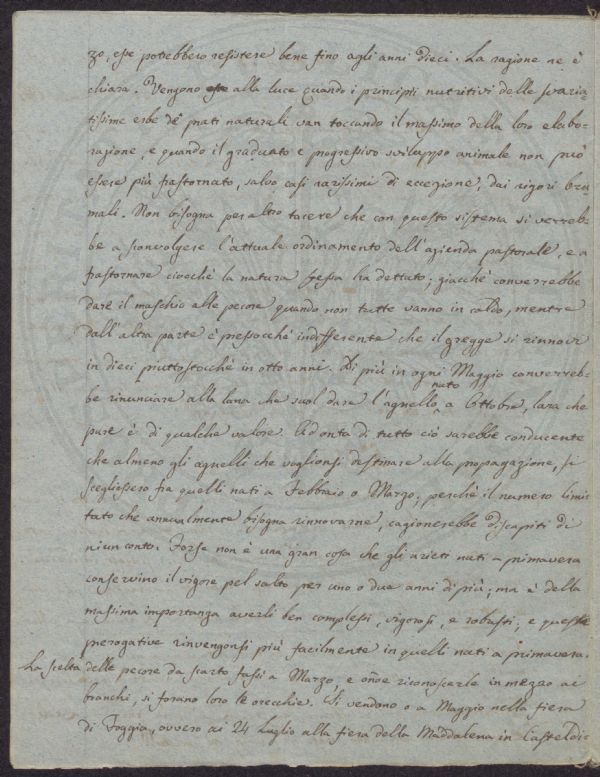 zo, esse potrebbero resistere bene fino agli anni dieci. La ragione ne è
chiara. Vengono esse alla luce quando i principii nutritivi delle svaria-
tissime erbe de' prati naturali van toccando il massimo della loro elabo-
razione, e quando il graduato e progressivo sviluppo animale non può
essere più frastornato, salvo casi rarissimi di eccezione, dai rigori bru-
mali. Non bisogna per altro tacere che con questo sistema si verreb-
be a sconvolgere l'attuale ordinamento dell'azienda pastorale, e a
frastornare ciocchè la natura stessa ha dettato; giacchè converrebbe
dare il maschio alle pecore quando non tutte vanno in caldo, mentre
dall'altra parte è pressocchè indifferente che il gregge si rinnovi
in dieci piuttostocchè in otto anni. Di più in ogni Maggio converreb-
be rinunciare alla lana che suol dare l'agnello nato a Ottobre, lana che
pure è di qualche valore. Ad onta di tutto ciò sarebbe conducente
che almeno gli agnelli che voglionsi destinare alla propagazione, si
scegliessero fra quelli nati a Febbraio o Marzo; perchè il numero limi-
tato che annualmente bisogna rinnovarne, cagionerebbe discapiti di
niun conto. Forse non è una gran cosa che gli arieti nati a primavera
conservino il vigore pel salto per uno o due anni di più; ma è della
massima importanza averli ben complessi, vigorosi, e robusti; e queste
prerogative rinvengonsi più facilmente in quelli nati a primavera.
La scelta delle pecore da scarto fassi a Marzo, e onde riconoscerle in mezzo ai
branchi, si forano loro le orecchie. Si vendono o a Maggio nella fiera
di Foggia, ovvero ai 24 Luglio alla fiera della Maddalena in Casteldi-